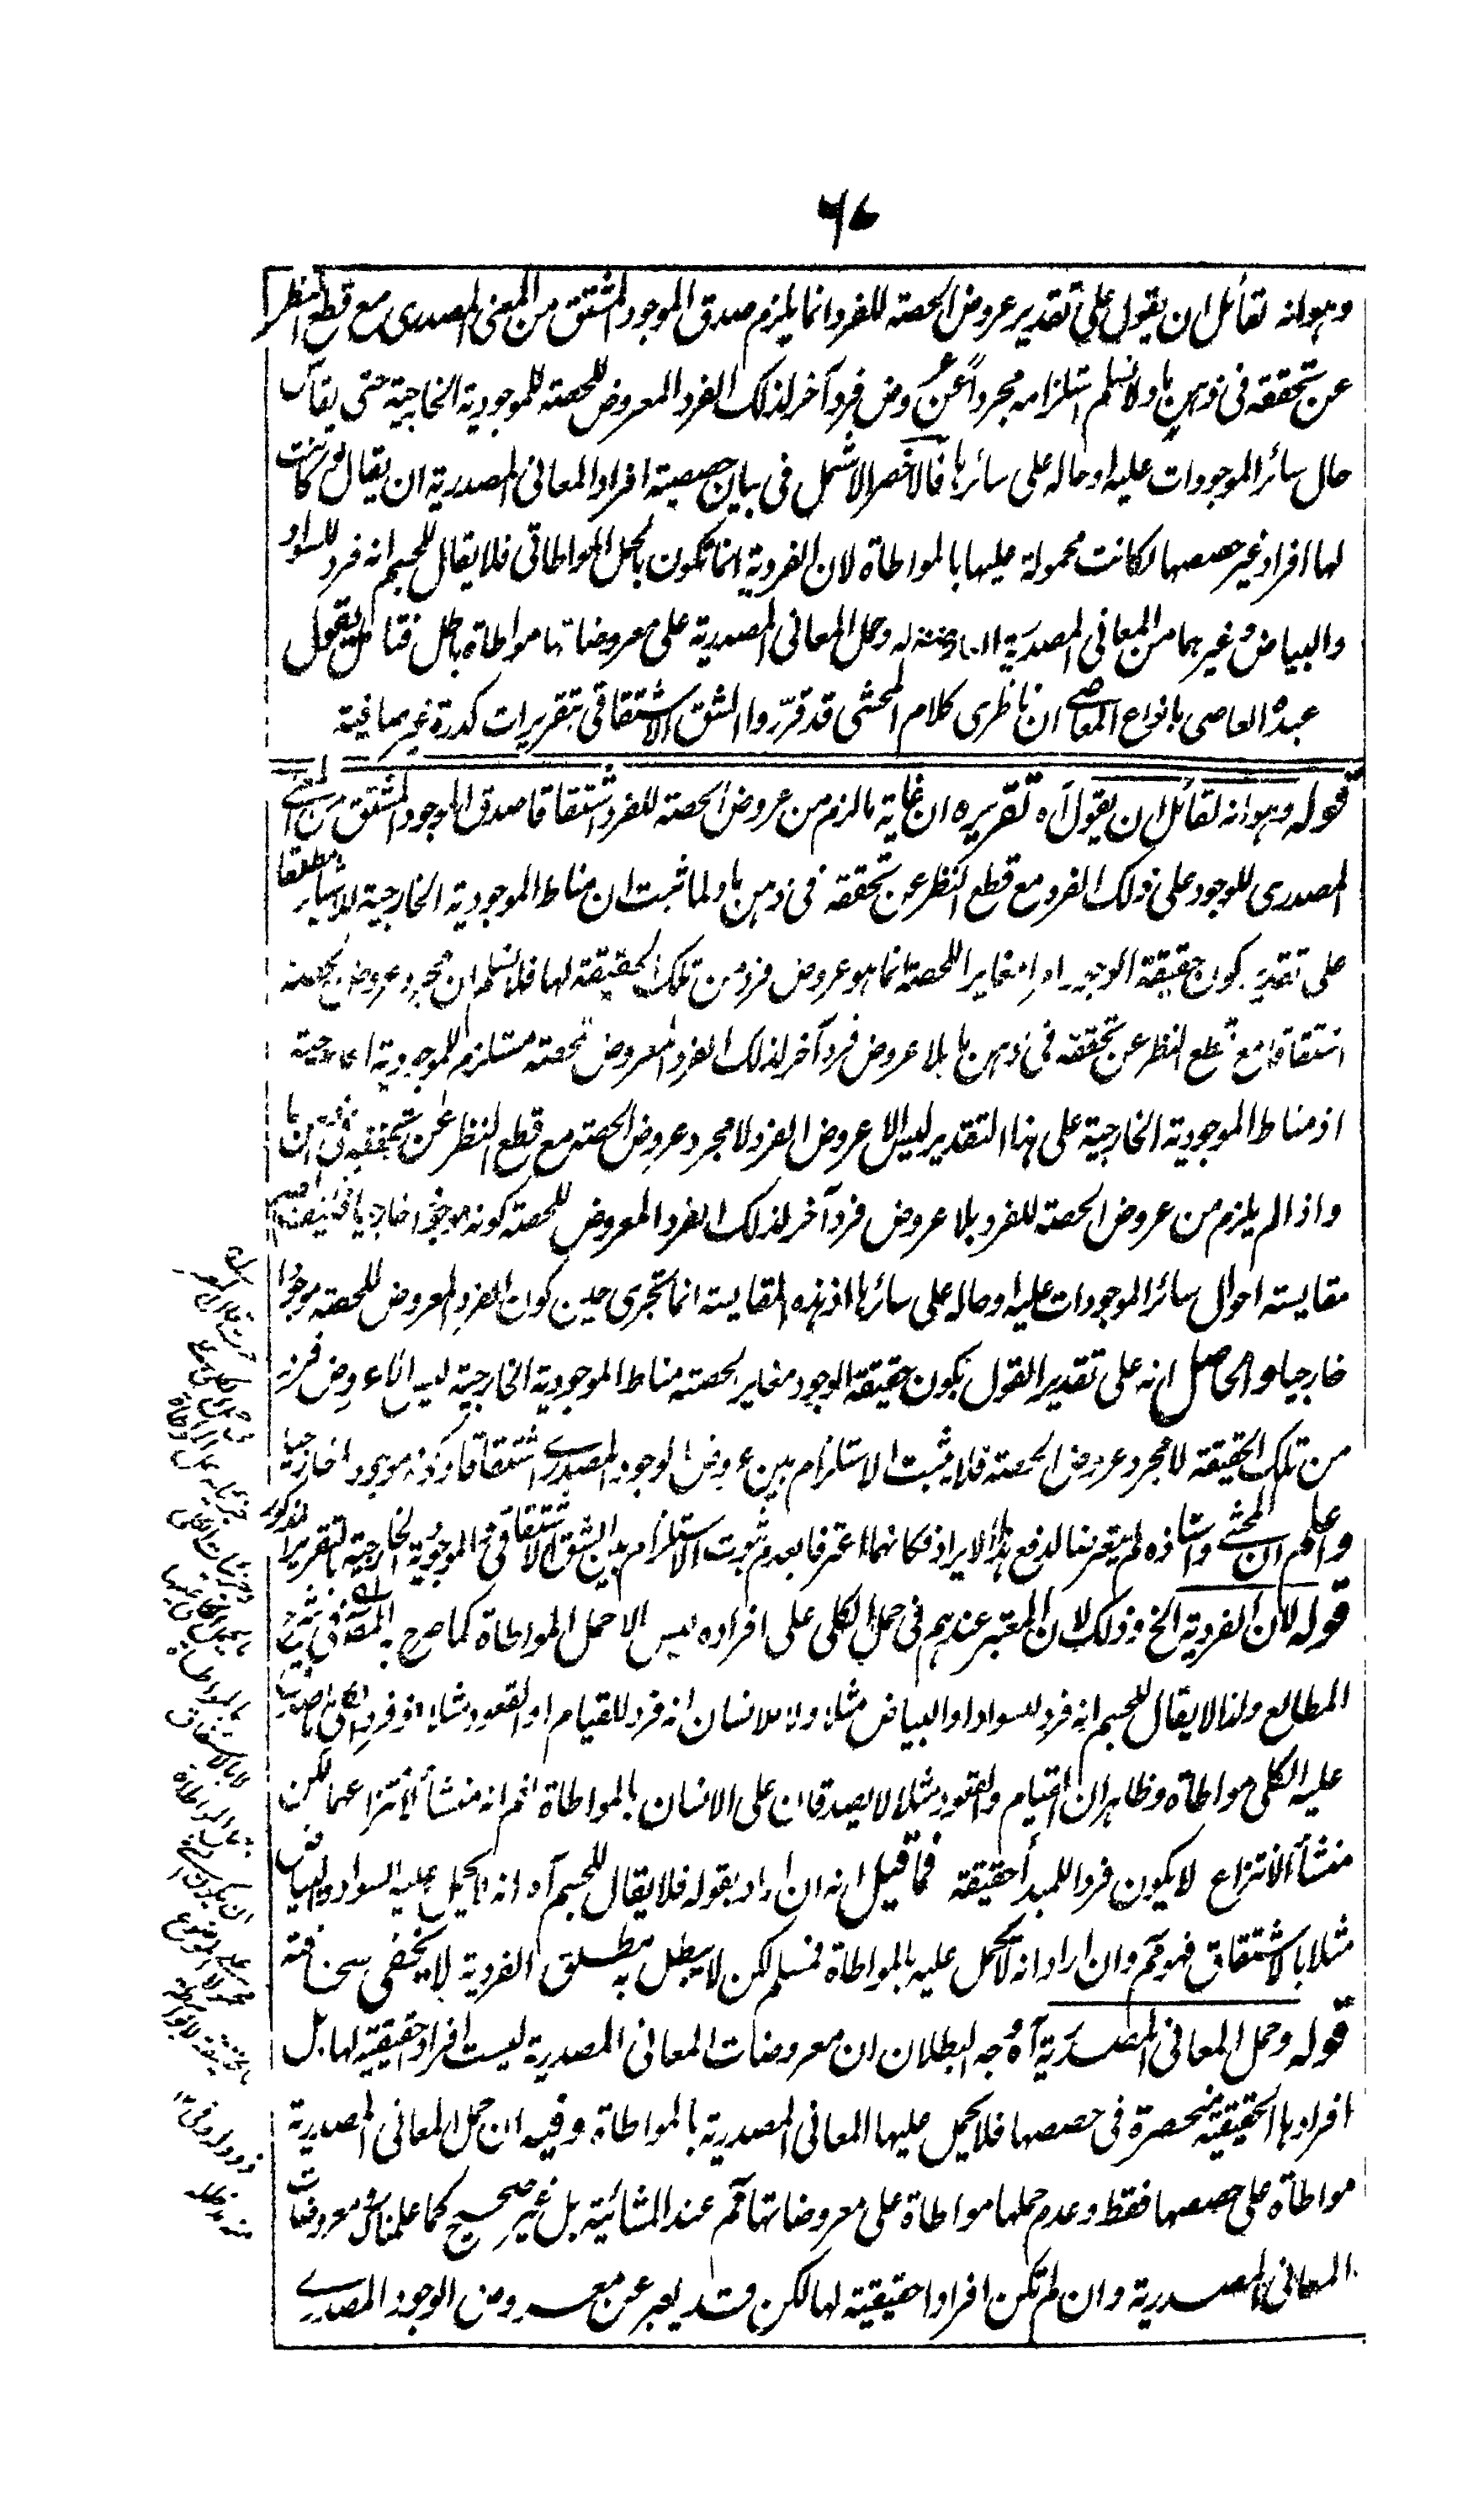 ٦٧
وهو انه لقائل ان يقول على تقدير عروض الحصة للفرد انما يلزم صدق الموجود المشتق من المعنى المصدرى مع قطع النظر
عن تحققه فى ذهن ما ولا نسلم استلزامه مجرداً عن عروض فرد آخر لذلك الفرد المعروض للحصة للموجودية الخارجية حتى يقاس
حال سائر الموجودات عليه او حاله على سائرها فالاخصر الاشمل فى بيان حصصية افراد المعانى المصدرية ان يقال لو كانت
لها افراد غير حصصها لكانت محمولة عليها بالمواطاة لان الفردية انما تكون بالحمل المواطاتى فلا يقال للجسم انه فرد للسواد
والبياض وغيرهما من المعانى المصدرية العارضة له وحمل المعانى المصدرية على معروضاتها مواطاة باطل فتامل يقول
عبده العاصى بانواع المعاصى ان ناظرى كلام المحشى قد قرّروا الشق الاشتقاقى بتقريرات كدرة غير صافية
قوله وهو انه لقائل ان يقول آه تقريره ان غاية ما لزم من عروض الحصة للفرد اشتقاقا صدق الموجود المشتق من المعنى
المصدرى للوجود على ذلك الفرد مع قطع النظر عن تحققه فى ذهن ما ولما ثبت ان مناط الموجودية الخارجية للاشياء مطلقا
على تقدير كون حقيقة الوجود امرا مغايرا للحصة انما هو عروض فرد من تلك الحقيقة لها فلا نسلم ان مجرد عروض الحصة
اشتقاقا مع قطع النظر عن تحققه فى ذهن ما بلا عروض فرد آخر لذلك الفرد المعروض للحصة مستلزم للموجودية الخارجية
اذ مناط الموجودية الخارجية على هذا التقدير ليس الا عروض الفرد لا مجرد عروض الحصة مع قطع النظر عن تحققه فى ذهن ما
واذا لم يلزم من عروض الحصة للفرد بلا عروض فرد آخر لذلك الفرد المعروض للحصة كونه موجودا خارجيا
مقايسة احوال سائر الموجودات عليه او حاله على سائرها اذ هذه المقايسة انما تجرى حين كون الفرد المعروض للحصة موجودا
خارجيا والحاصل انه على تقدير القول بكون حقيقة الوجود مغاير لحصته مناط الموجودية الخارجية ليس الا عروض فرد
من تلك الحقيقة لا مجرد عروض الحصة فلا يثبت الاستلزام بين عروض الوجود المصدرى اشتقاقا وكونه موجودا خارجيا
واعلم ان المحشى واستاذه لم يتعرضا لدفع هذا الايراد فكانهما اعترفا بعدم ثبوت الاستلزام بين الشق الاشتقاقى والموجودية الخارجية بالتقرير المذكور
قوله لان الفردية الخ وذلك لان المعتبر عندهم فى حمل الكلى على افراده ليس الا حمل المواطاة كما صرح به المص فى شرح
المطالع ولذا لا يقال للجسم انه فرد للسواد او البياض مثلا ولا للانسان انه فرد للقيام او القعود مثلا اذ فرد الكلى ما صدق
عليه الكلى مواطاة وظاهر ان القيام والقعود مثلا لا يصدقان على الانسان بالمواطاة نعم انه منشأ لانتزاعهما لكن
منشأ الانتزاع لا يكون فردا للمبدأ حقيقة فما قيل انه ان اراد بقوله فلا يقال للجسم آه انه لا يحمل عليه السواد والبياض
مثلا بالاشتقاق فهو مم وان اراد انه لا يحمل عليه بالمواطاة فمسلم لكن لا يبطل به مطلق الفردية لا يخفى سخافته
قوله وحمل المعانى المصدرية آه وجه البطلان ان معروضات المعانى المصدرية ليست افرادا حقيقية لها بل
افرادها الحقيقية منحصرة فى حصصها فلا يحمل عليها المعانى المصدرية بالمواطاة وفيه ان حمل المعانى المصدرية
مواطاة على حصصها فقط وعدم حملها مواطاة على معروضاتها مم عند المشائية بل غير صحيح كما علمناك معروضات
المعانى المصدرية وان لم تكن افرادا حقيقية لها لكن قد يعبر عن معروض الوجود المصدرى